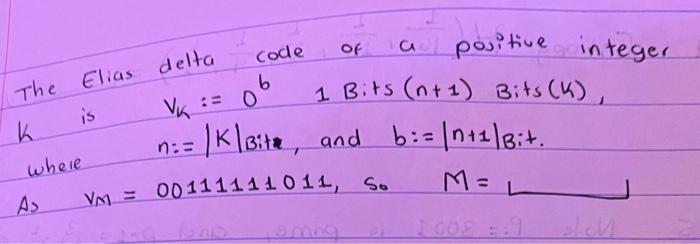 The Elias delta code of a positive integer
k is V_K := 0^b 1 Bits(n+1) Bits(K),
where n:= |K|Bit, and b:= |n+1|Bit.
As V_M = 00111111011, So M = ______